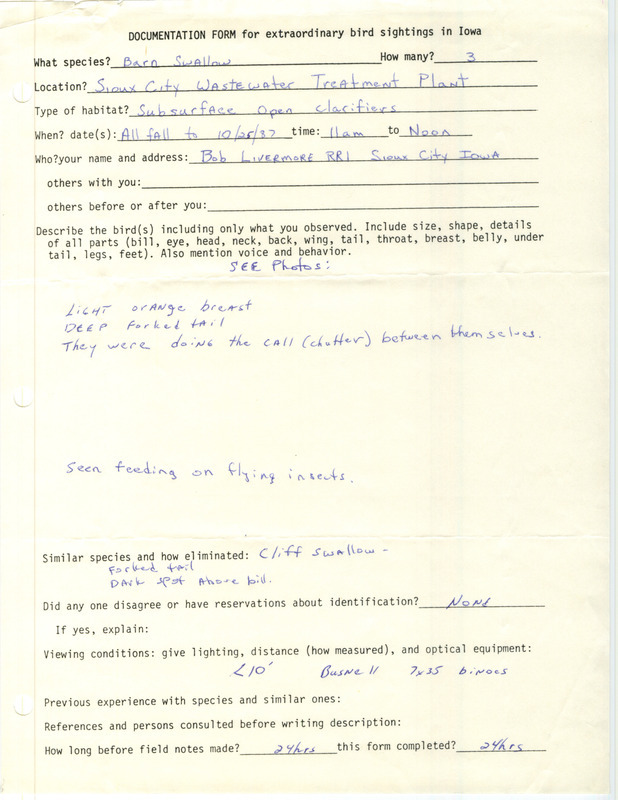 DOCUMENTATION FORM for extraordinary bird sightings in Iowa
What species? Barn Swallow How many? 3
Location? Sioux City Wastewater Treatment Plant
Type of habitat? Subsurface Open Clarifiers
When? date(s): All fall to 10/25/87 time: 11am to Noon
Who?your name and address: Bob Livermore RR1 Sioux City Iowa
others with you:
others before or after you:
Describe the bird(s) including only what you observed. Include size, shape, details
of all parts (bill, eye, head, neck, back, wing, tail, throat, breast, belly, under
tail, legs, feet). Also mention voice and behavior.
SEE Photos:
Light orange breast
DEEP forked tail
They were doing the call (chutter) between themselves.
Seen feeding on flying insects.
Similar species and how eliminated: Cliff Swallow -
Forked tail
Dark spot above bill.
Did any one disagree or have reservations about identification? None
If yes, explain:
Viewing conditions: give lighting, distance (how measured), and optical equipment:
<10' Busnell 7x35 binocs
Previous experience with species and similar ones:
References and persons consulted before writing description:
How long before field notes made? 24hrs this form completed? 24hrs